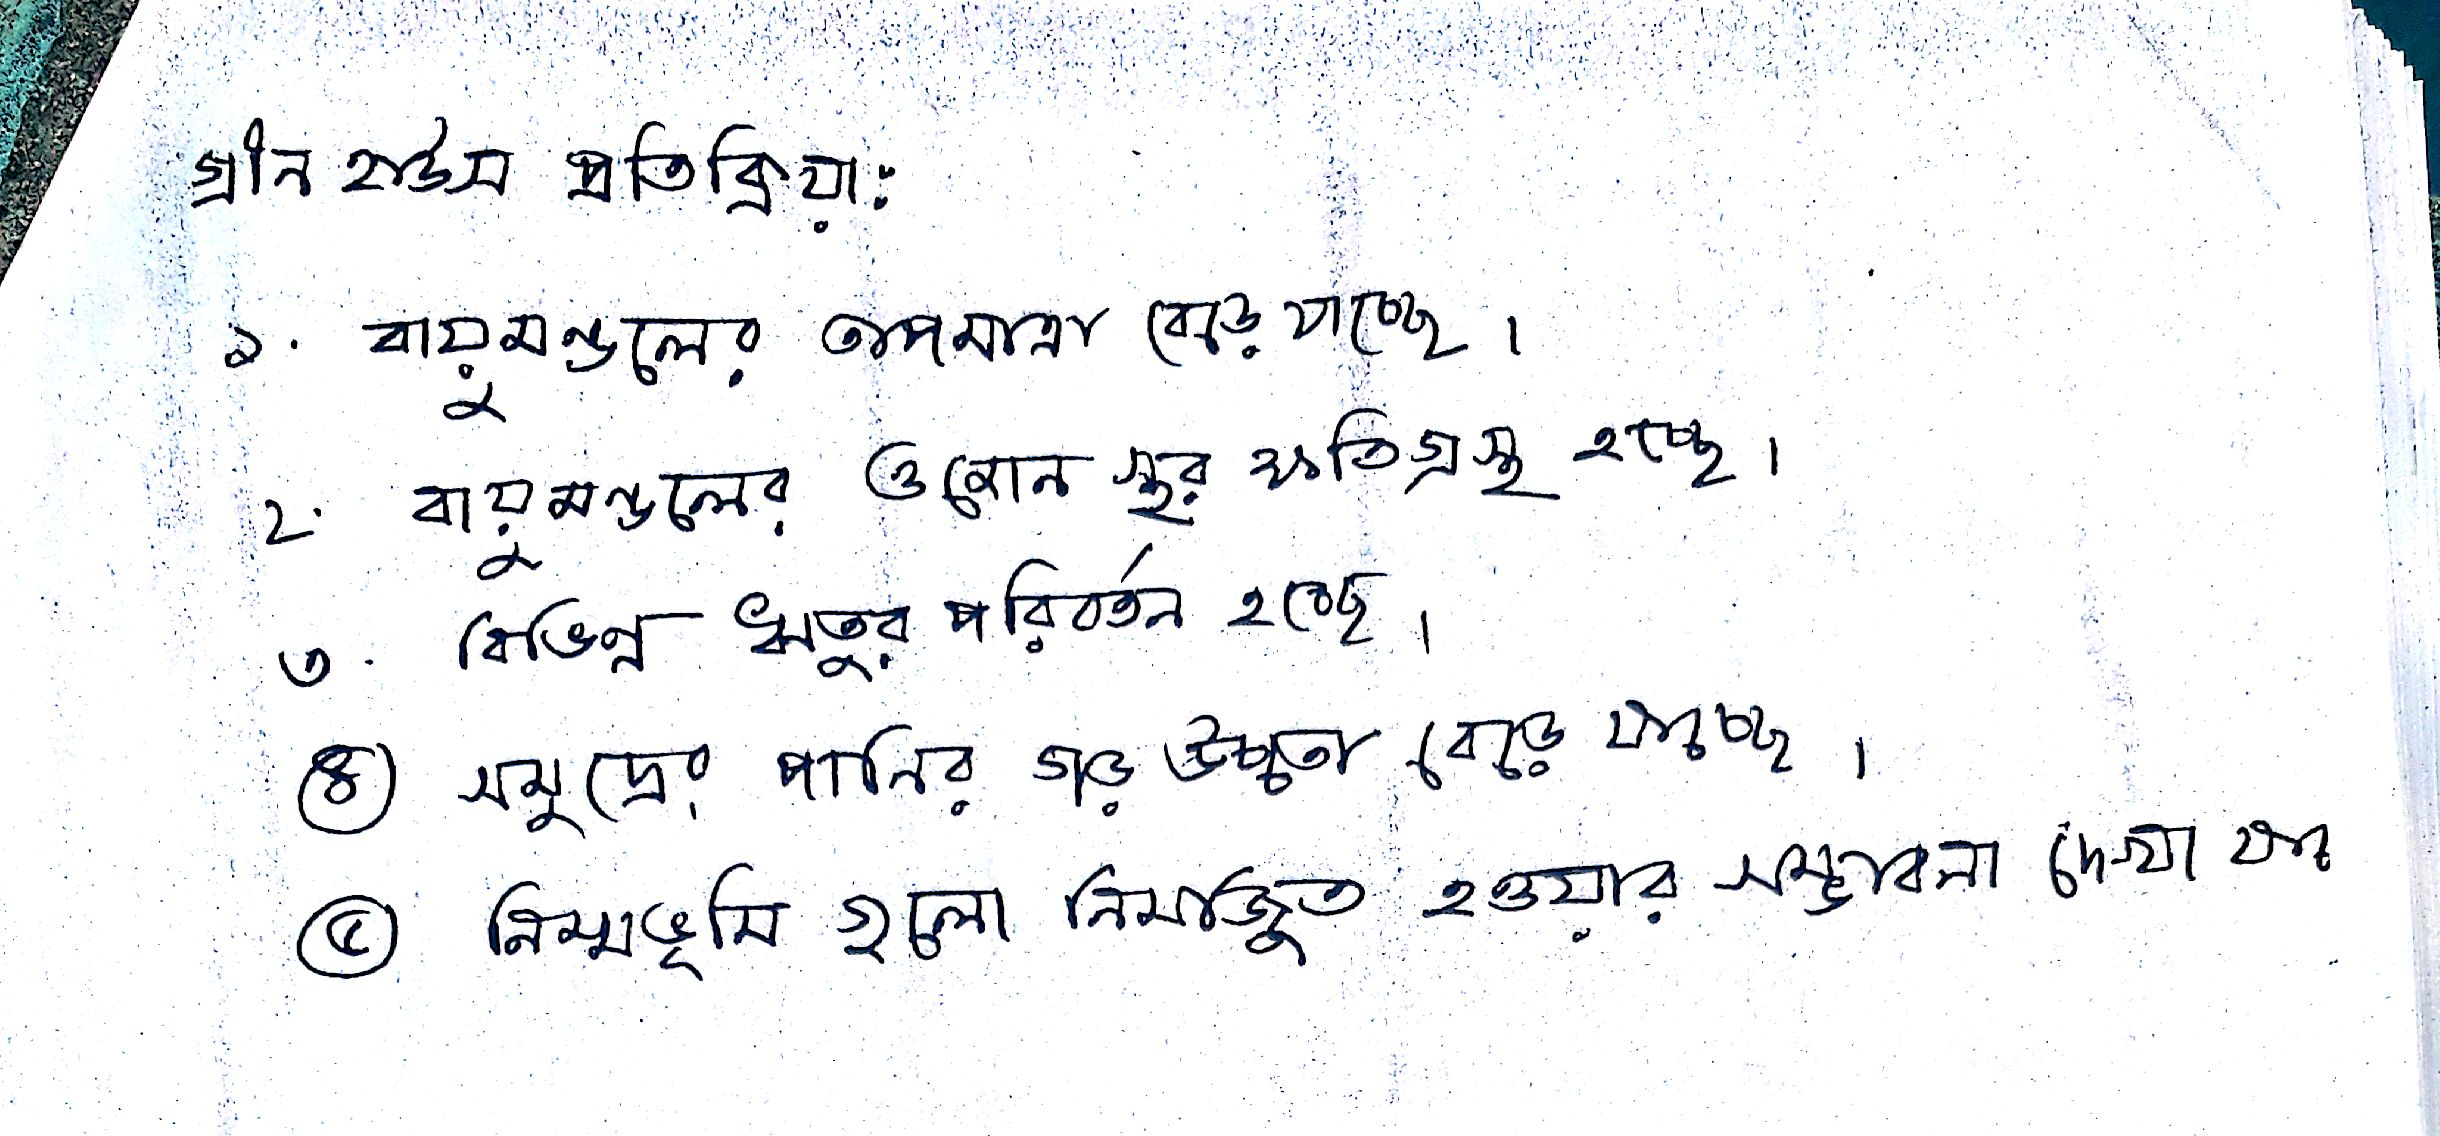 গ্রীন হাউস প্রতিক্রিয়া:
১. বায়ুমন্ডলের তাপমাত্রা বেড়ে যাচ্ছে।
২. বায়ুমন্ডলের ওজোন স্থর ক্ষতিগ্রস্থ হচ্ছে।
৩. বিভিন্ন ঋতুর পরিবর্তন হচ্ছে।
৪ সমুদ্রের পানির গড় উচ্চতা বেড়ে যাচ্ছে।
৫ নিম্মভূমি গুলো নিমজ্জিত হওয়ার সম্ভাবনা দেখা যা